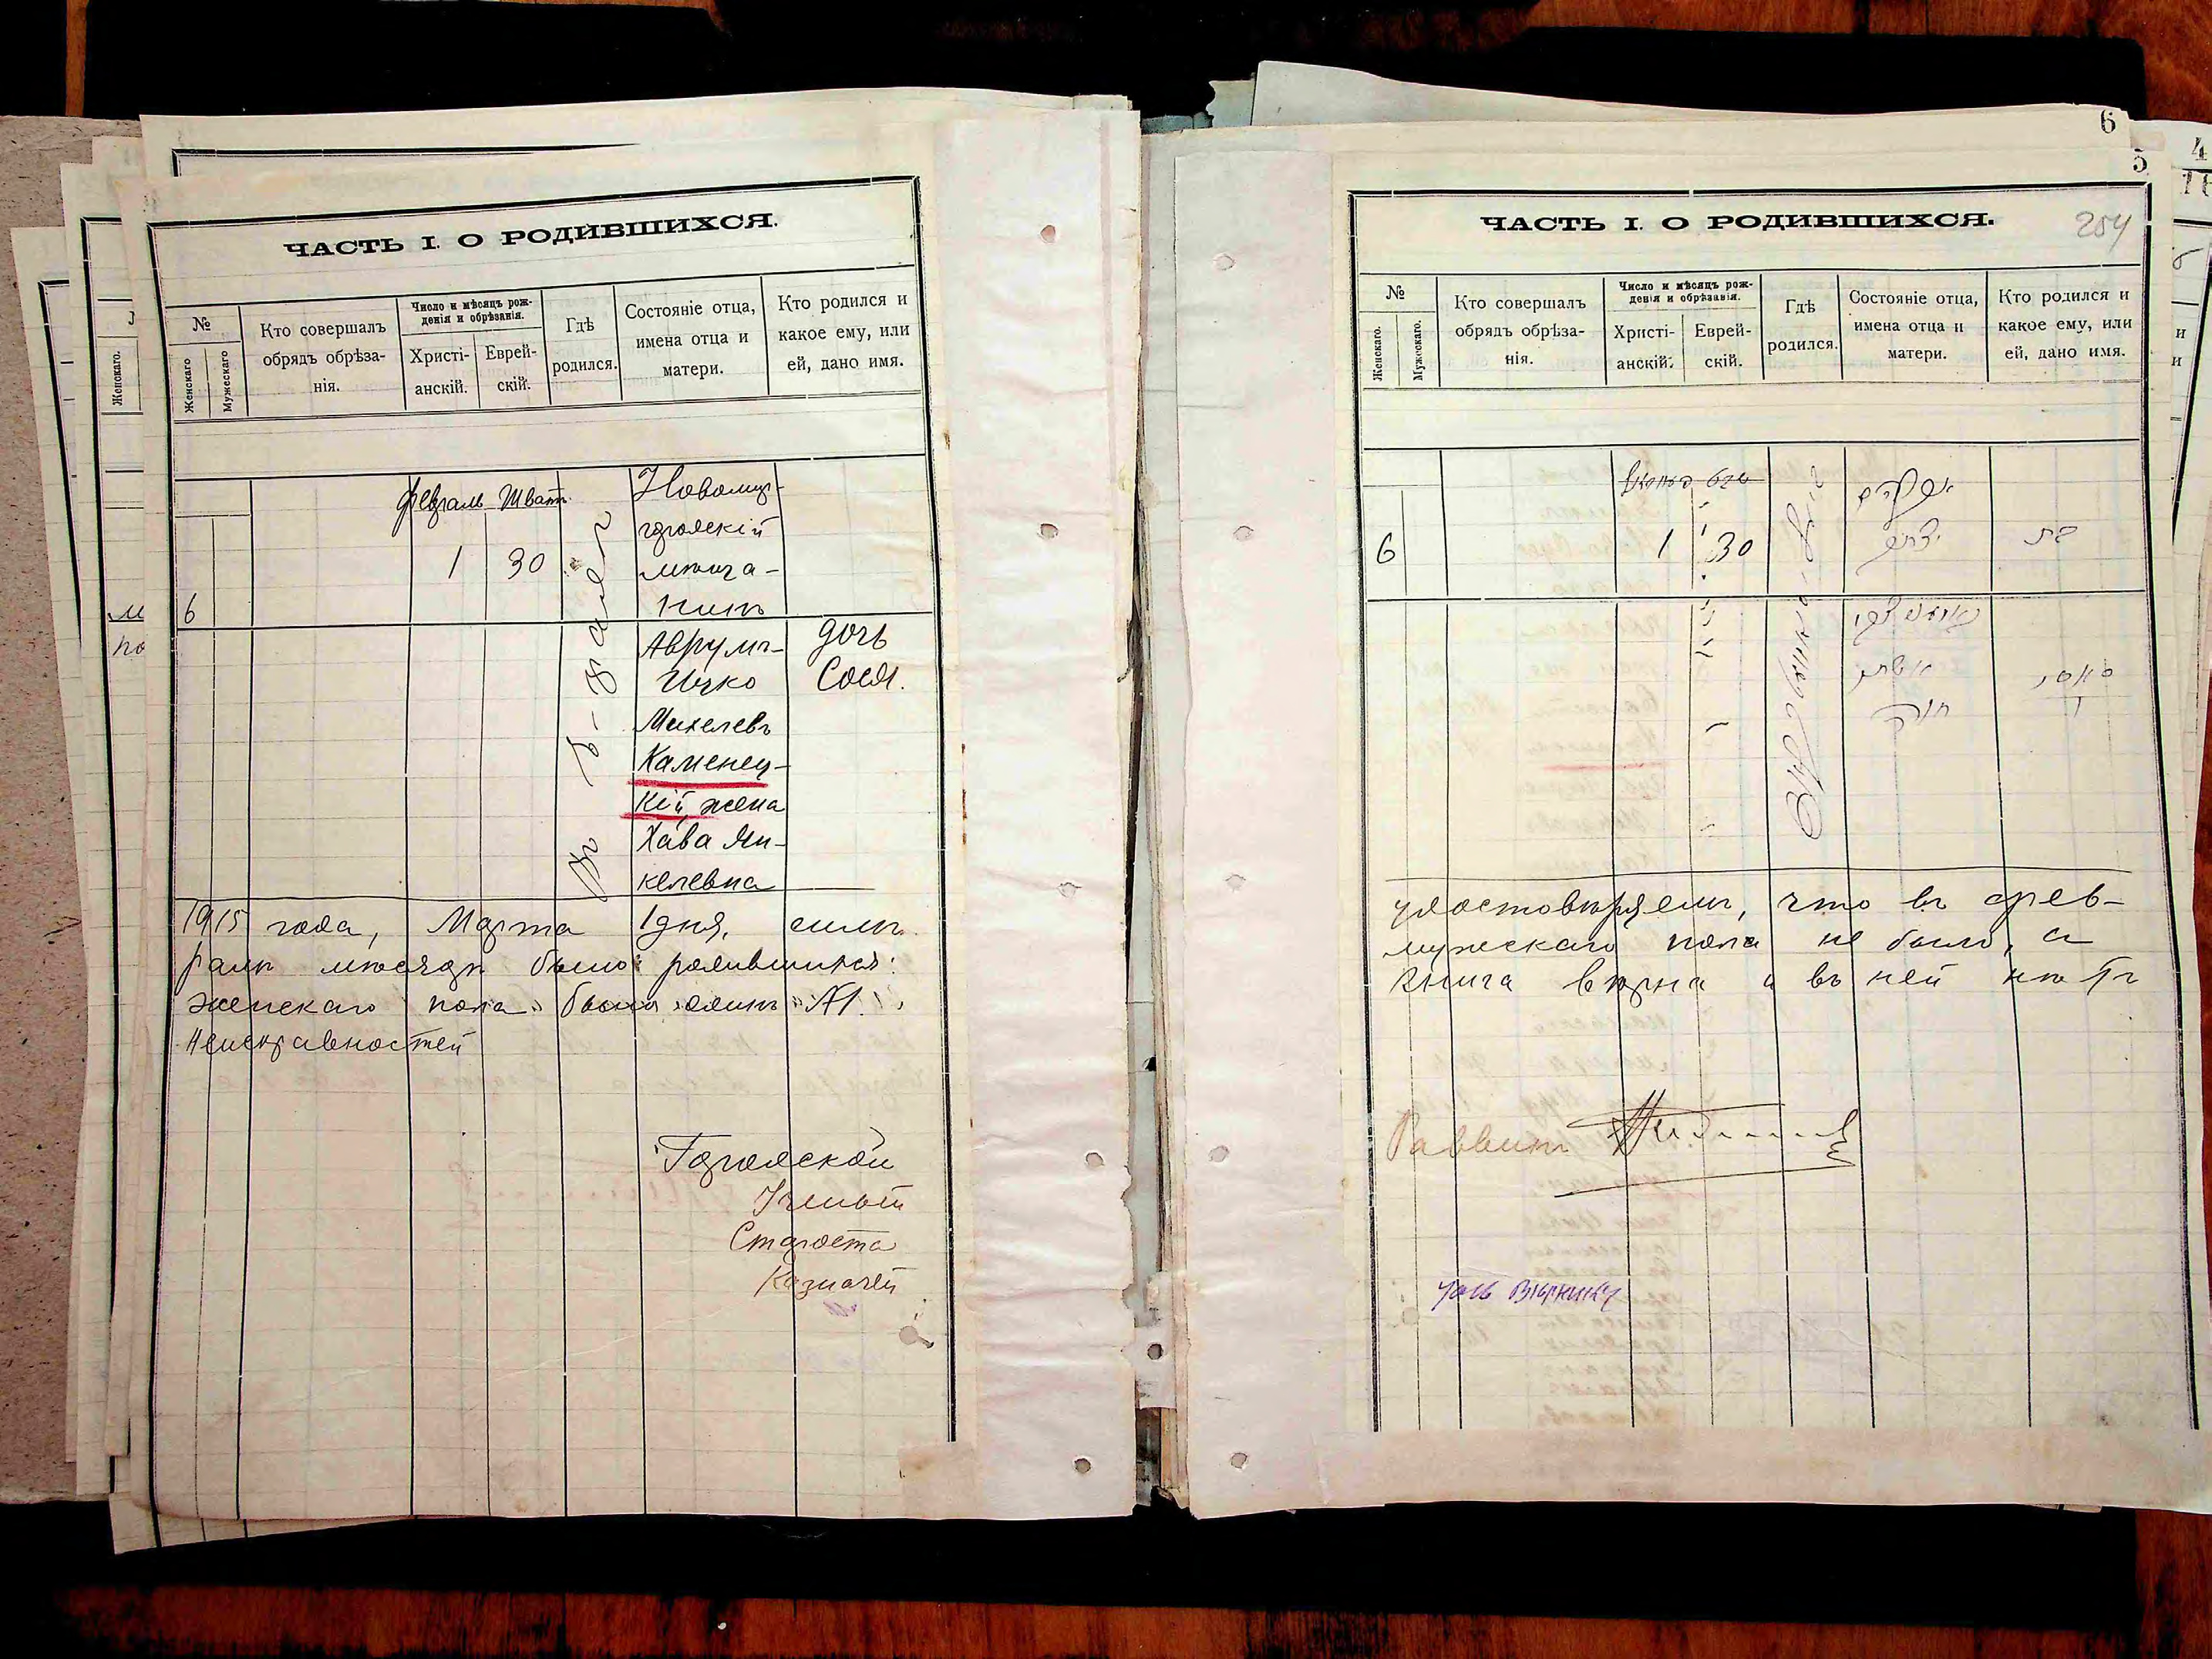 ЧАСТЬ I. О РОДИВШИХСЯ.
№
Женскаго
Мужескаго
Кто совершалъ
обрядъ обрѣза-
нія.
Число и мѣсяцъ рож-
денія и обрѣзанія.
Христі-
анскій.
Еврей-
скій.
Гдѣ
родился.
Состояніе отца,
имена отца и
матери.
Кто родился и
какое ему, или
ей, дано имя.
Февраль Шватъ
1 30
6
Новомир-
городскій
мѣща-
нинъ
Аврумъ-
Ицко
Михелевъ
Каменец-
кій, жена
Хава Ян-
келевна
дочь
Сося.
1915 года, Марта 1 дня,
ралѣ мѣсяцѣ было родившихся:
женскаго пола былъ одинъ №1.
Неисправностей
Городской
Ученый
Староста
Казначей
6
5
ЧАСТЬ I. О РОДИВШИХСЯ.
254
№
Женскаго.
Мужескаго.
Кто совершалъ
обрядъ обрѣза-
нія.
Число и мѣсяцъ рож-
денія и обрѣзанія.
Христі-
анскій.
Еврей-
скій.
Гдѣ
родился.
Состояніе отца,
имена отца и
матери.
Кто родился и
какое ему, или
ей, дано имя.
6
1 30
אברהם
יצחק
בת
אשתו
חוה
удостовѣряемъ, что въ фев-
мужескаго пола не было, а
книга вѣрна и въ ней нѣтъ
Раввинъ